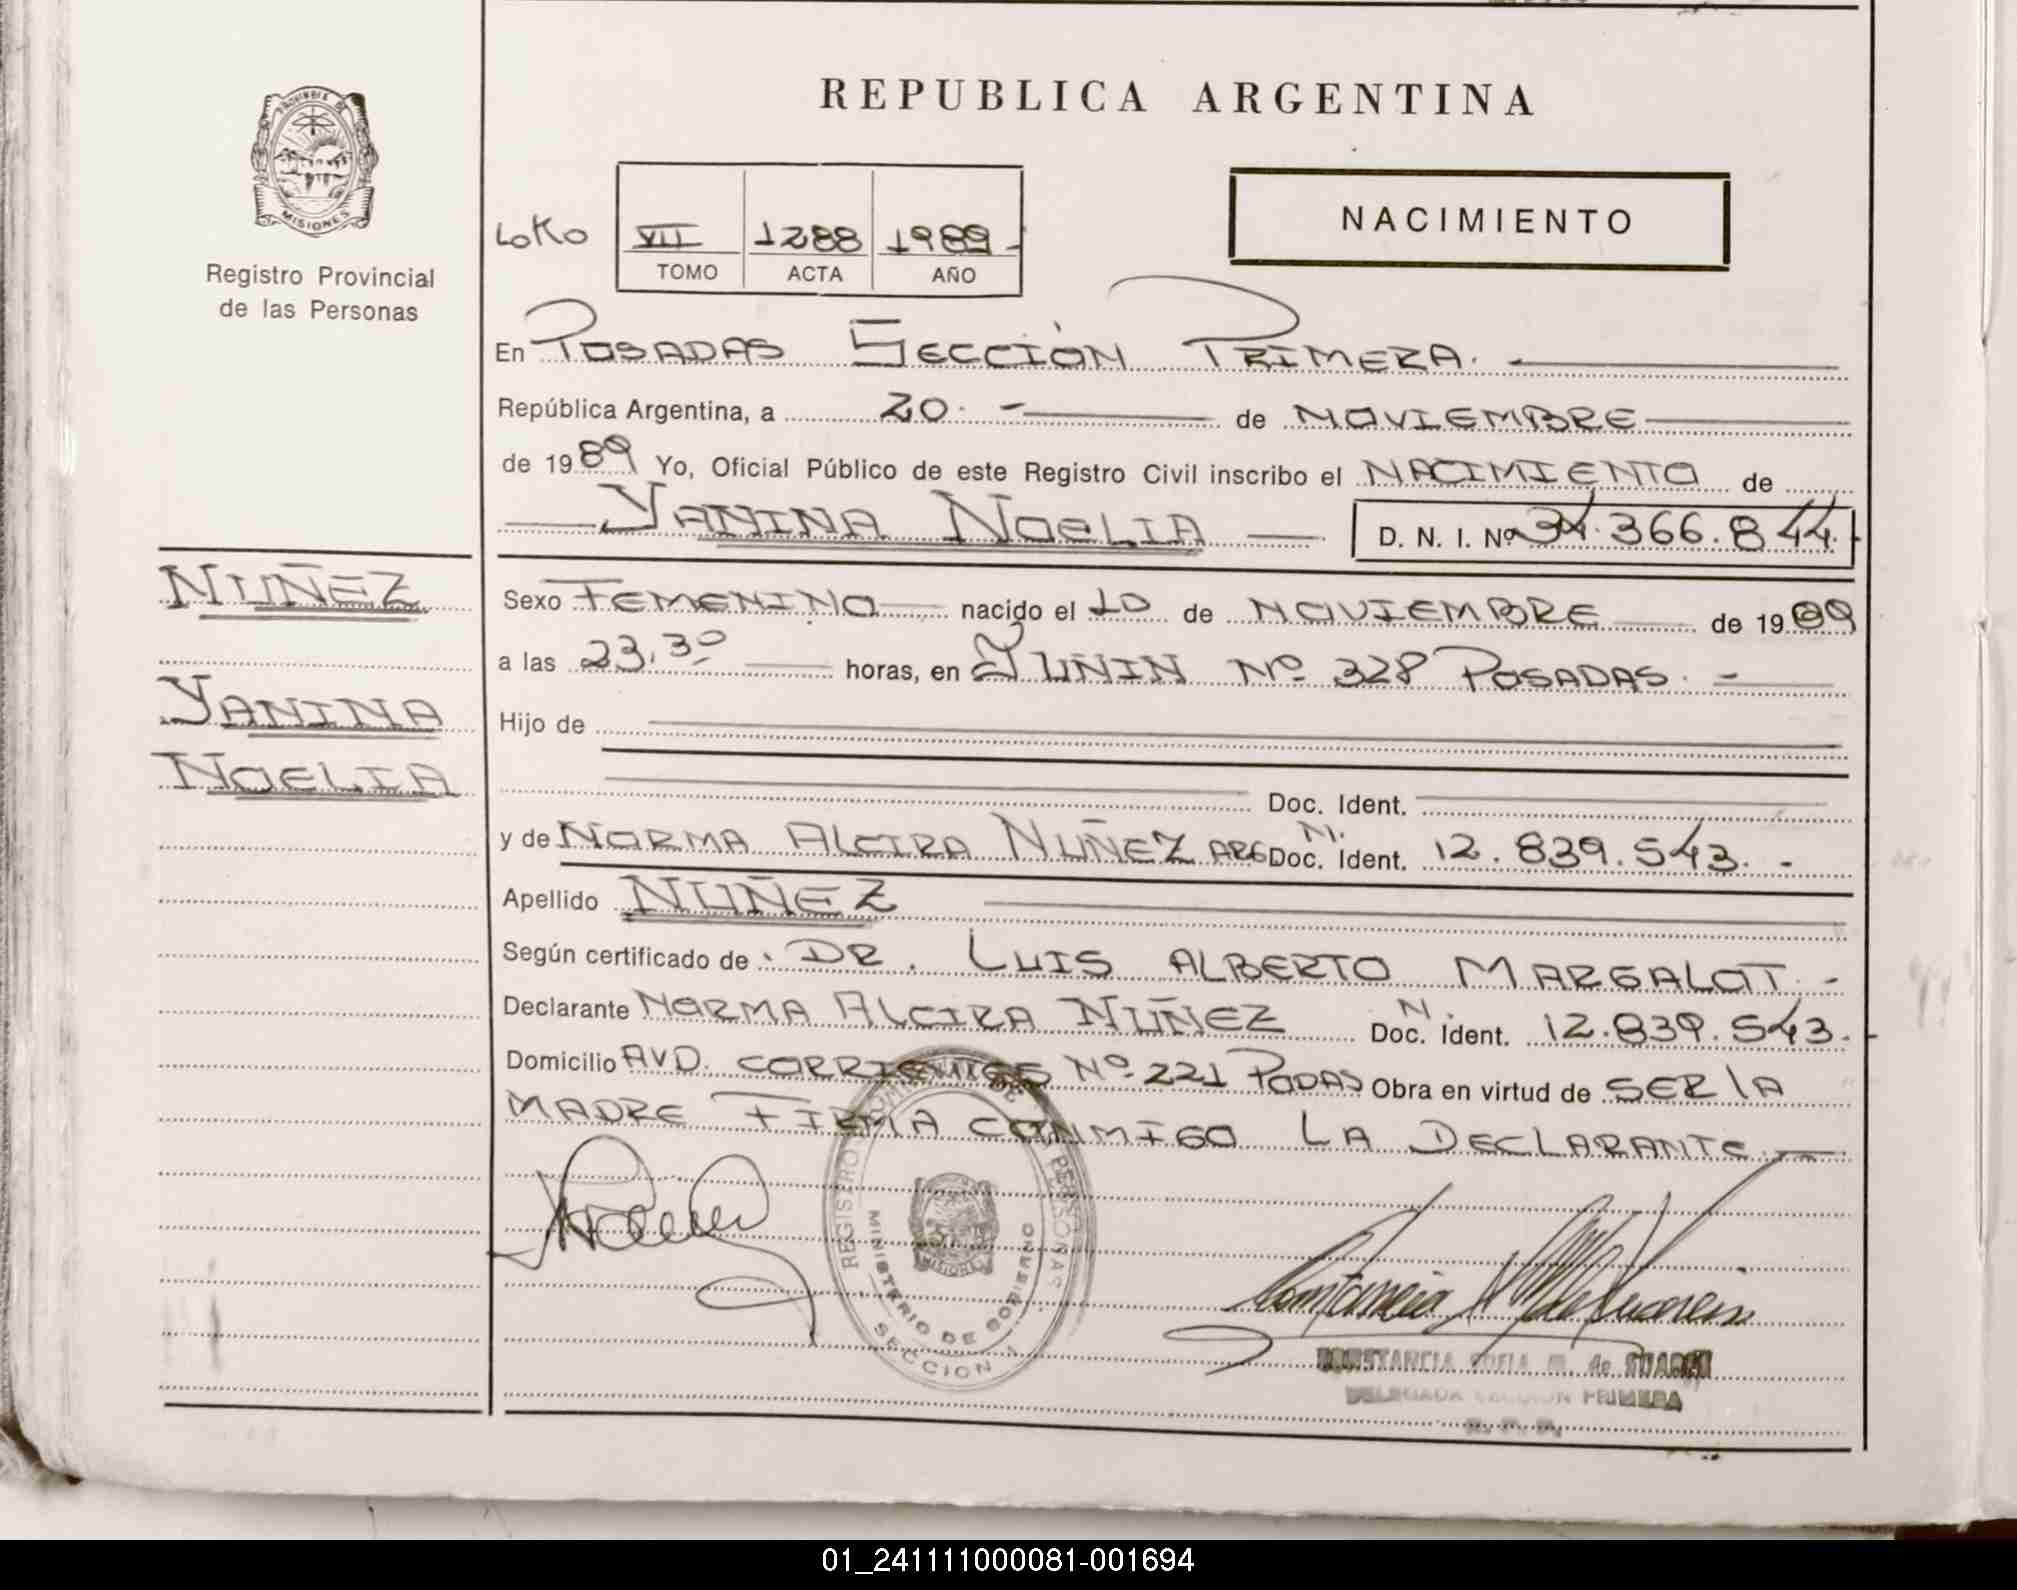 REPUBLICA ARGENTINA
PROVINCIA DE
MISIONES
Registro Provincial
de las Personas
LOKO
VII 1288 1989
TOMO ACTA AÑO
NACIMIENTO
En POSADAS SECCIÓN PRIMERA.
República Argentina, a 20. de NOVIEMBRE
de 1989 Yo, Oficial Público de este Registro Civil inscribo el NACIMIENTO de
YANINA NOELIA D. N. I. Nº 34.366.844.
NUÑEZ
YANINA
NOELIA
Sexo FEMENINO nacido el 10 de NOVIEMBRE de 1989
a las 23.30 horas, en JUNIN Nº 328 POSADAS.
Hijo de
Doc. Ident.
y de NORMA ALCIRA NUÑEZ ARG N. Doc. Ident. 12.839.543.-
Apellido NUÑEZ
Según certificado de DR. LUIS ALBERTO MARGALOT.-
Declarante NORMA ALCIRA NUÑEZ N. Doc. Ident. 12.839.543.-
Domicilio AVD. CORRIENTES Nº 221 PODAS Obra en virtud de SER LA
MADRE FIRMA CONMIGO LA DECLARANTE
REGISTRO DE PERSONAS
MISIONES
MINISTERIO DE GOBIERNO
SECCION 1
CONSTANCIA SOFIA M. de SUAREZ
DELEGADA SECCION PRIMERA
01_241111000081-001694